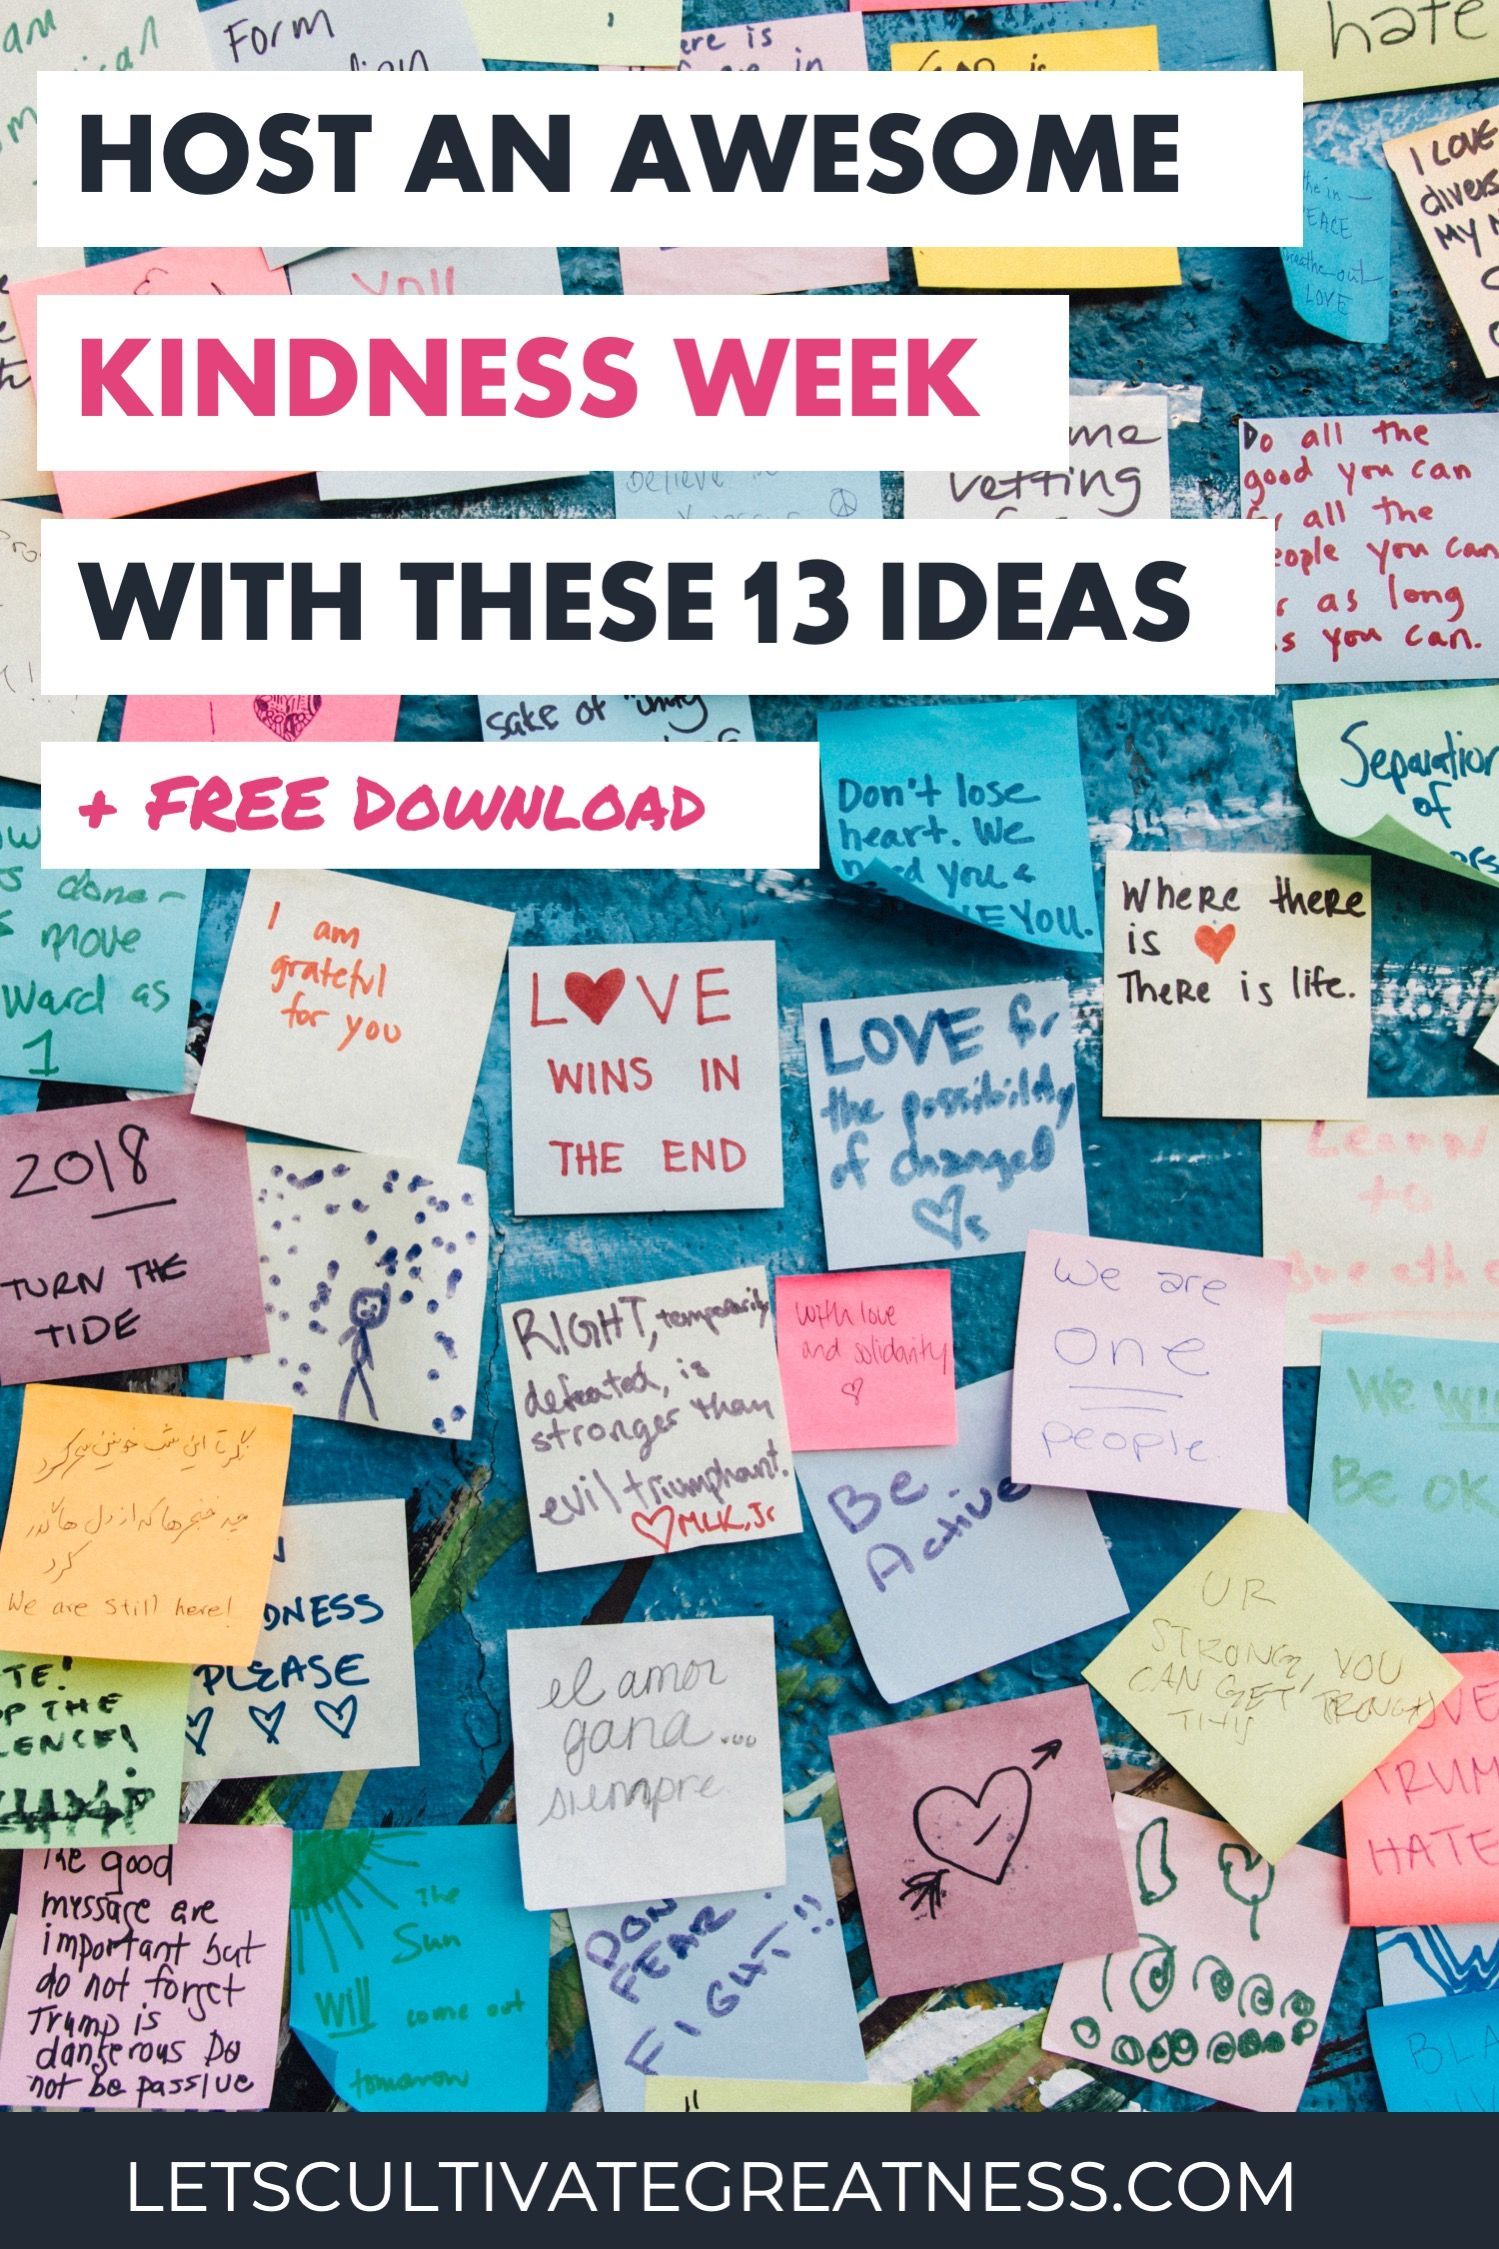 am
Form
ere is
hate
HOST AN AWESOME
I LOVE
PEACE
LOVE
you
KINDNESS WEEK
vetting
Do all the
good you can
all the
you can
as long
you can.
believe
WITH THESE 13 IDEAS
sake of "unity
Separation
of
+ FREE DOWNLOAD
Don't lose
heart. We
you &
YOU.
done-
move
ward as
1
I am
grateful
for you
L♥VE
WINS IN
THE END
LOVE for
the possibility
of changed
♡s
Where there
is ♥
There is life.
Learn
to
Breathe
2018
TURN THE
TIDE
RIGHT, temporarily
defeated, is
stronger than
evil triumphant.
♡MLK, Jr
with love
and solidarity
♡
We are
one
people
We will
Be OK
Be
Active
We are still here!
DNESS
PLEASE
♡ ♡ ♡
TE!
OP THE
LENCE!
el amor
gana...
siempre
UR
STRONG, YOU
CAN GET
TRUM
HATE
The good
message are
important but
do not forget
Trump is
dangerous Do
not be passive
The
Sun
will come out
tomorrow
DON
FEAR
FIGHT!!
LETSCULTIVATEGREATNESS.COM